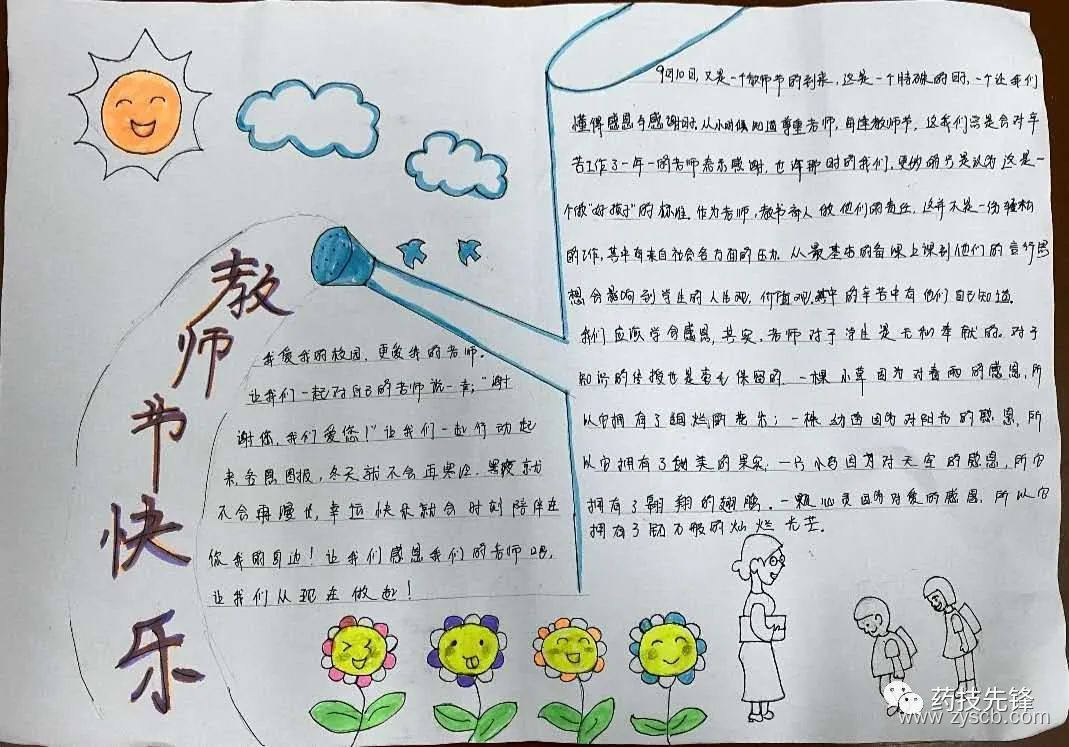 教师节快乐
我爱我的校园,更爱我的老师。
让我们一起对自己的老师说一声,"谢
谢你,我们爱您!"让我们一起行动起
来,各恩图报,冬天就不会再寒冷,黑夜就
不会再漫长,幸福快乐就会时刻陪伴在
你我的身边!让我们感恩我们的老师吧,
让我们从现在做起!
9月10日,又是一个教师节的到来,这是一个特殊的日,一个让我们
懂得感恩与感谢时。从小时候知道尊重老师,每逢教师节,这我们总是会对辛
苦工作了一年的老师表示感谢,也许那时的我们,更的是认为这是一
个做"好孩子"的标准。作为老师,教书育人做他们的责任,这并不是一份轻松
的工作,其中有来自社会各方面的压力。从最基本的备课上课到他们的言行思
想会影响到学生的人生观,价值观,其中的辛苦中有他们自己知道。
我们应该学会感恩,其实,老师对于学生是无私奉献的。对于
知识的传授也是毫无保留的。一棵小草因为对春雨的感恩,所
以它拥有了绚烂的花朵;一株幼苗因为对阳光的感恩,所
以它拥有了甜美的果实;一只小鸟因为对天空的感恩,所它
拥有了翱翔的翅膀。一颗心灵因为对爱的感恩,所以它
拥有了动力般的灿烂光芒。
药技先锋
www.zyscb.com